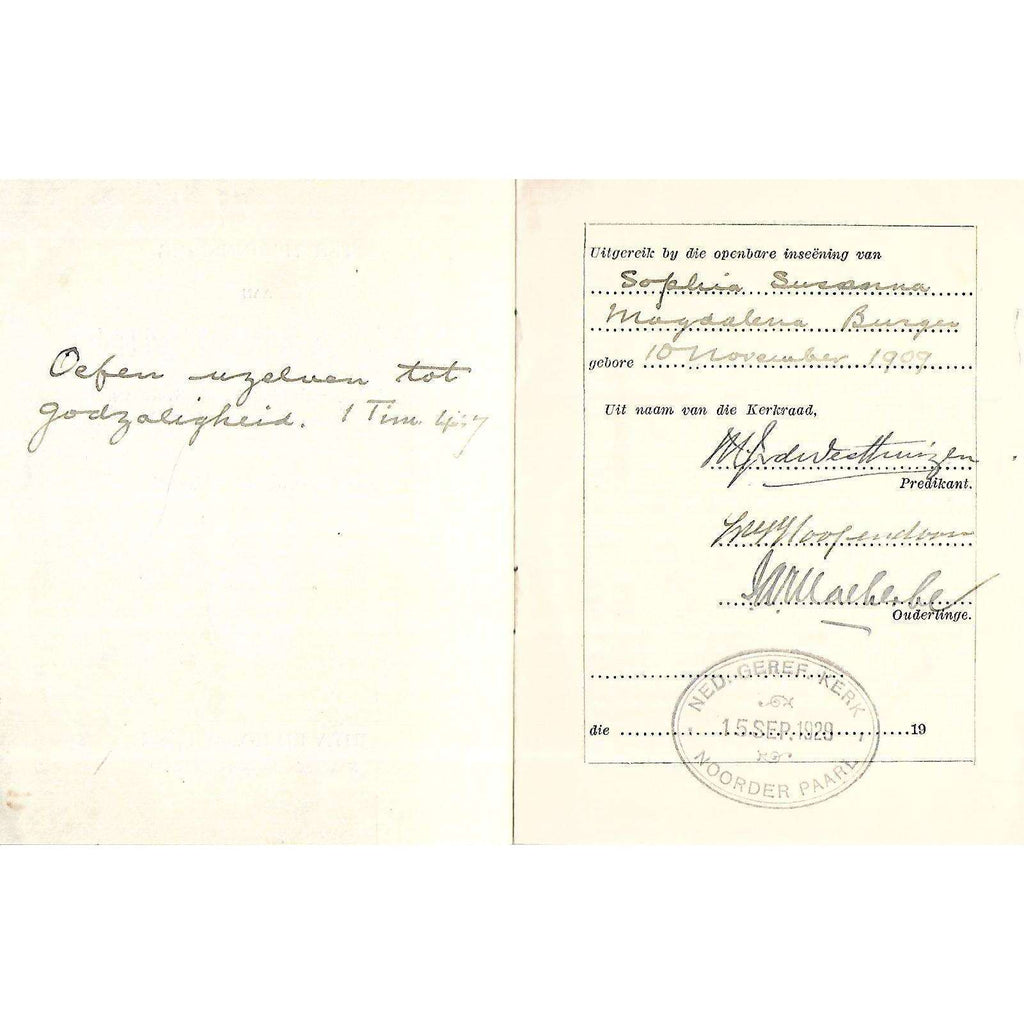 Oefen uzelven tot
godzaligheid. 1 Tim. 4:7
Uitgereik by die openbare inseëning van
Sophia Susanna
Magdalena Burger
gebore 10 November 1909
Uit naam van die Kerkraad,
v d Westhuizen
Predikant.
Malherbe
Ouderlinge.
NED. GEREF. KERK
15 SEP. 1929
die 19
NOORDER PAARL